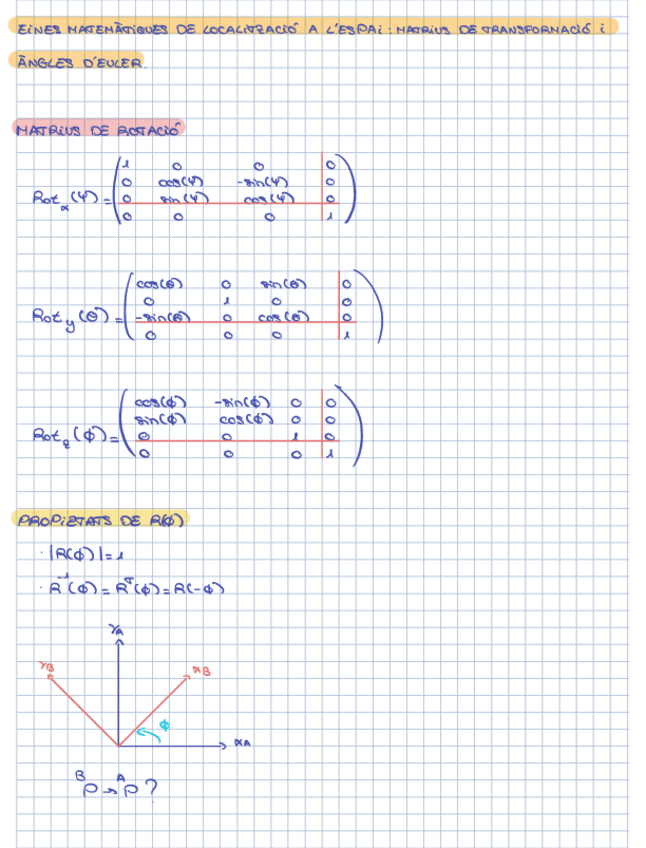 EINES MATEMÀTIQUES DE LOCALITZACIÓ A L'ESPAI: MATRIUS DE TRANSFORMACIÓ I
ÀNGLES D'EULER.
MATRIUS DE ROTACIÓ
Rotx(Ψ) =
1 0 0 0
0 cos(Ψ) -sin(Ψ) 0
0 sin(Ψ) cos(Ψ) 0
0 0 0 1
Roty(θ) =
cos(θ) 0 sin(θ) 0
0 1 0 0
-sin(θ) 0 cos(θ) 0
0 0 0 1
Rotz(ϕ) =
cos(ϕ) -sin(ϕ) 0 0
sin(ϕ) cos(ϕ) 0 0
0 0 1 0
0 0 0 1
PROPIETATS DE R(ϕ)
· |R(ϕ)| = 1
· R⁻¹(ϕ) = Rᵀ(ϕ) = R(-ϕ)
YA
YB
XB
ϕ
XA
ᴮP → ᴬP?